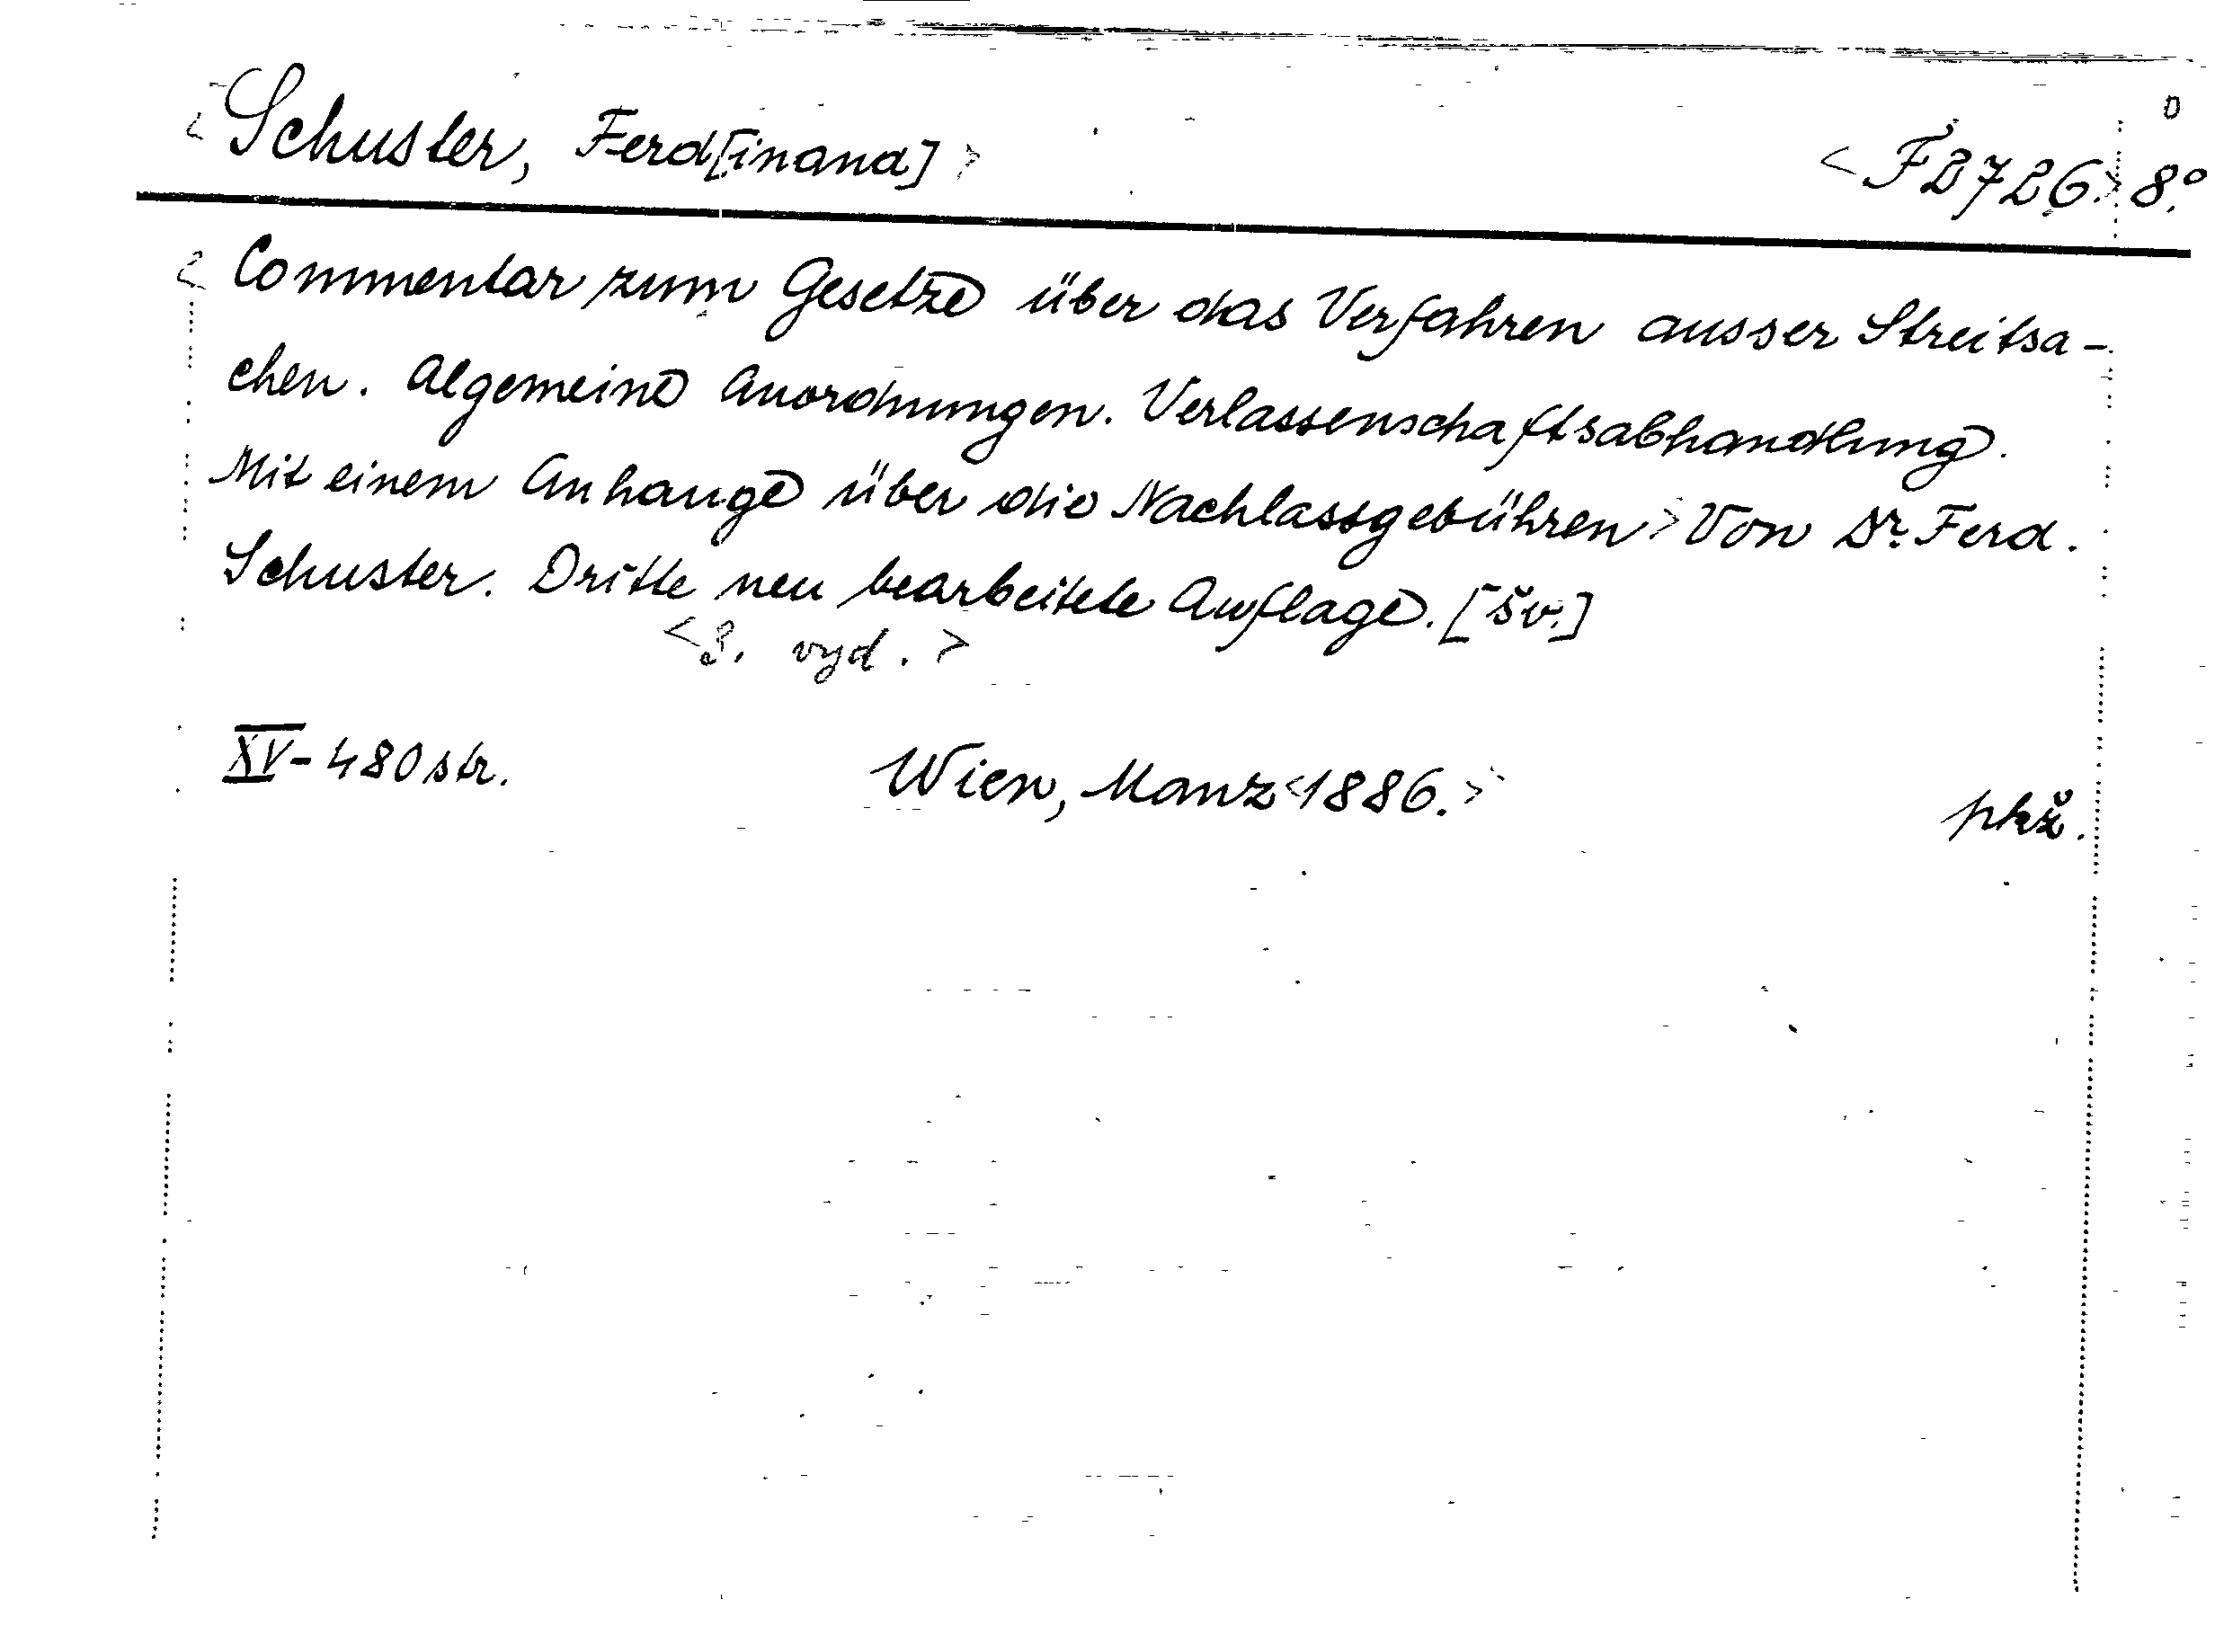 <Schuster, Ferd[inand]> <FD726.> 8.°
<Commentar zum Gesetze über das Verfahren ausser Streitsa-
chen. Algemeine Anordnungen. Verlassenschaftsabhandlung.
Mit einem Anhange über die Nachlassgebühren> Von Dr. Ferd.
Schuster. Dritte neu bearbeitete Auflage. [šv.]
<3. vyd.>
XV-480 str. Wien, Manz <1886.>
pkž.